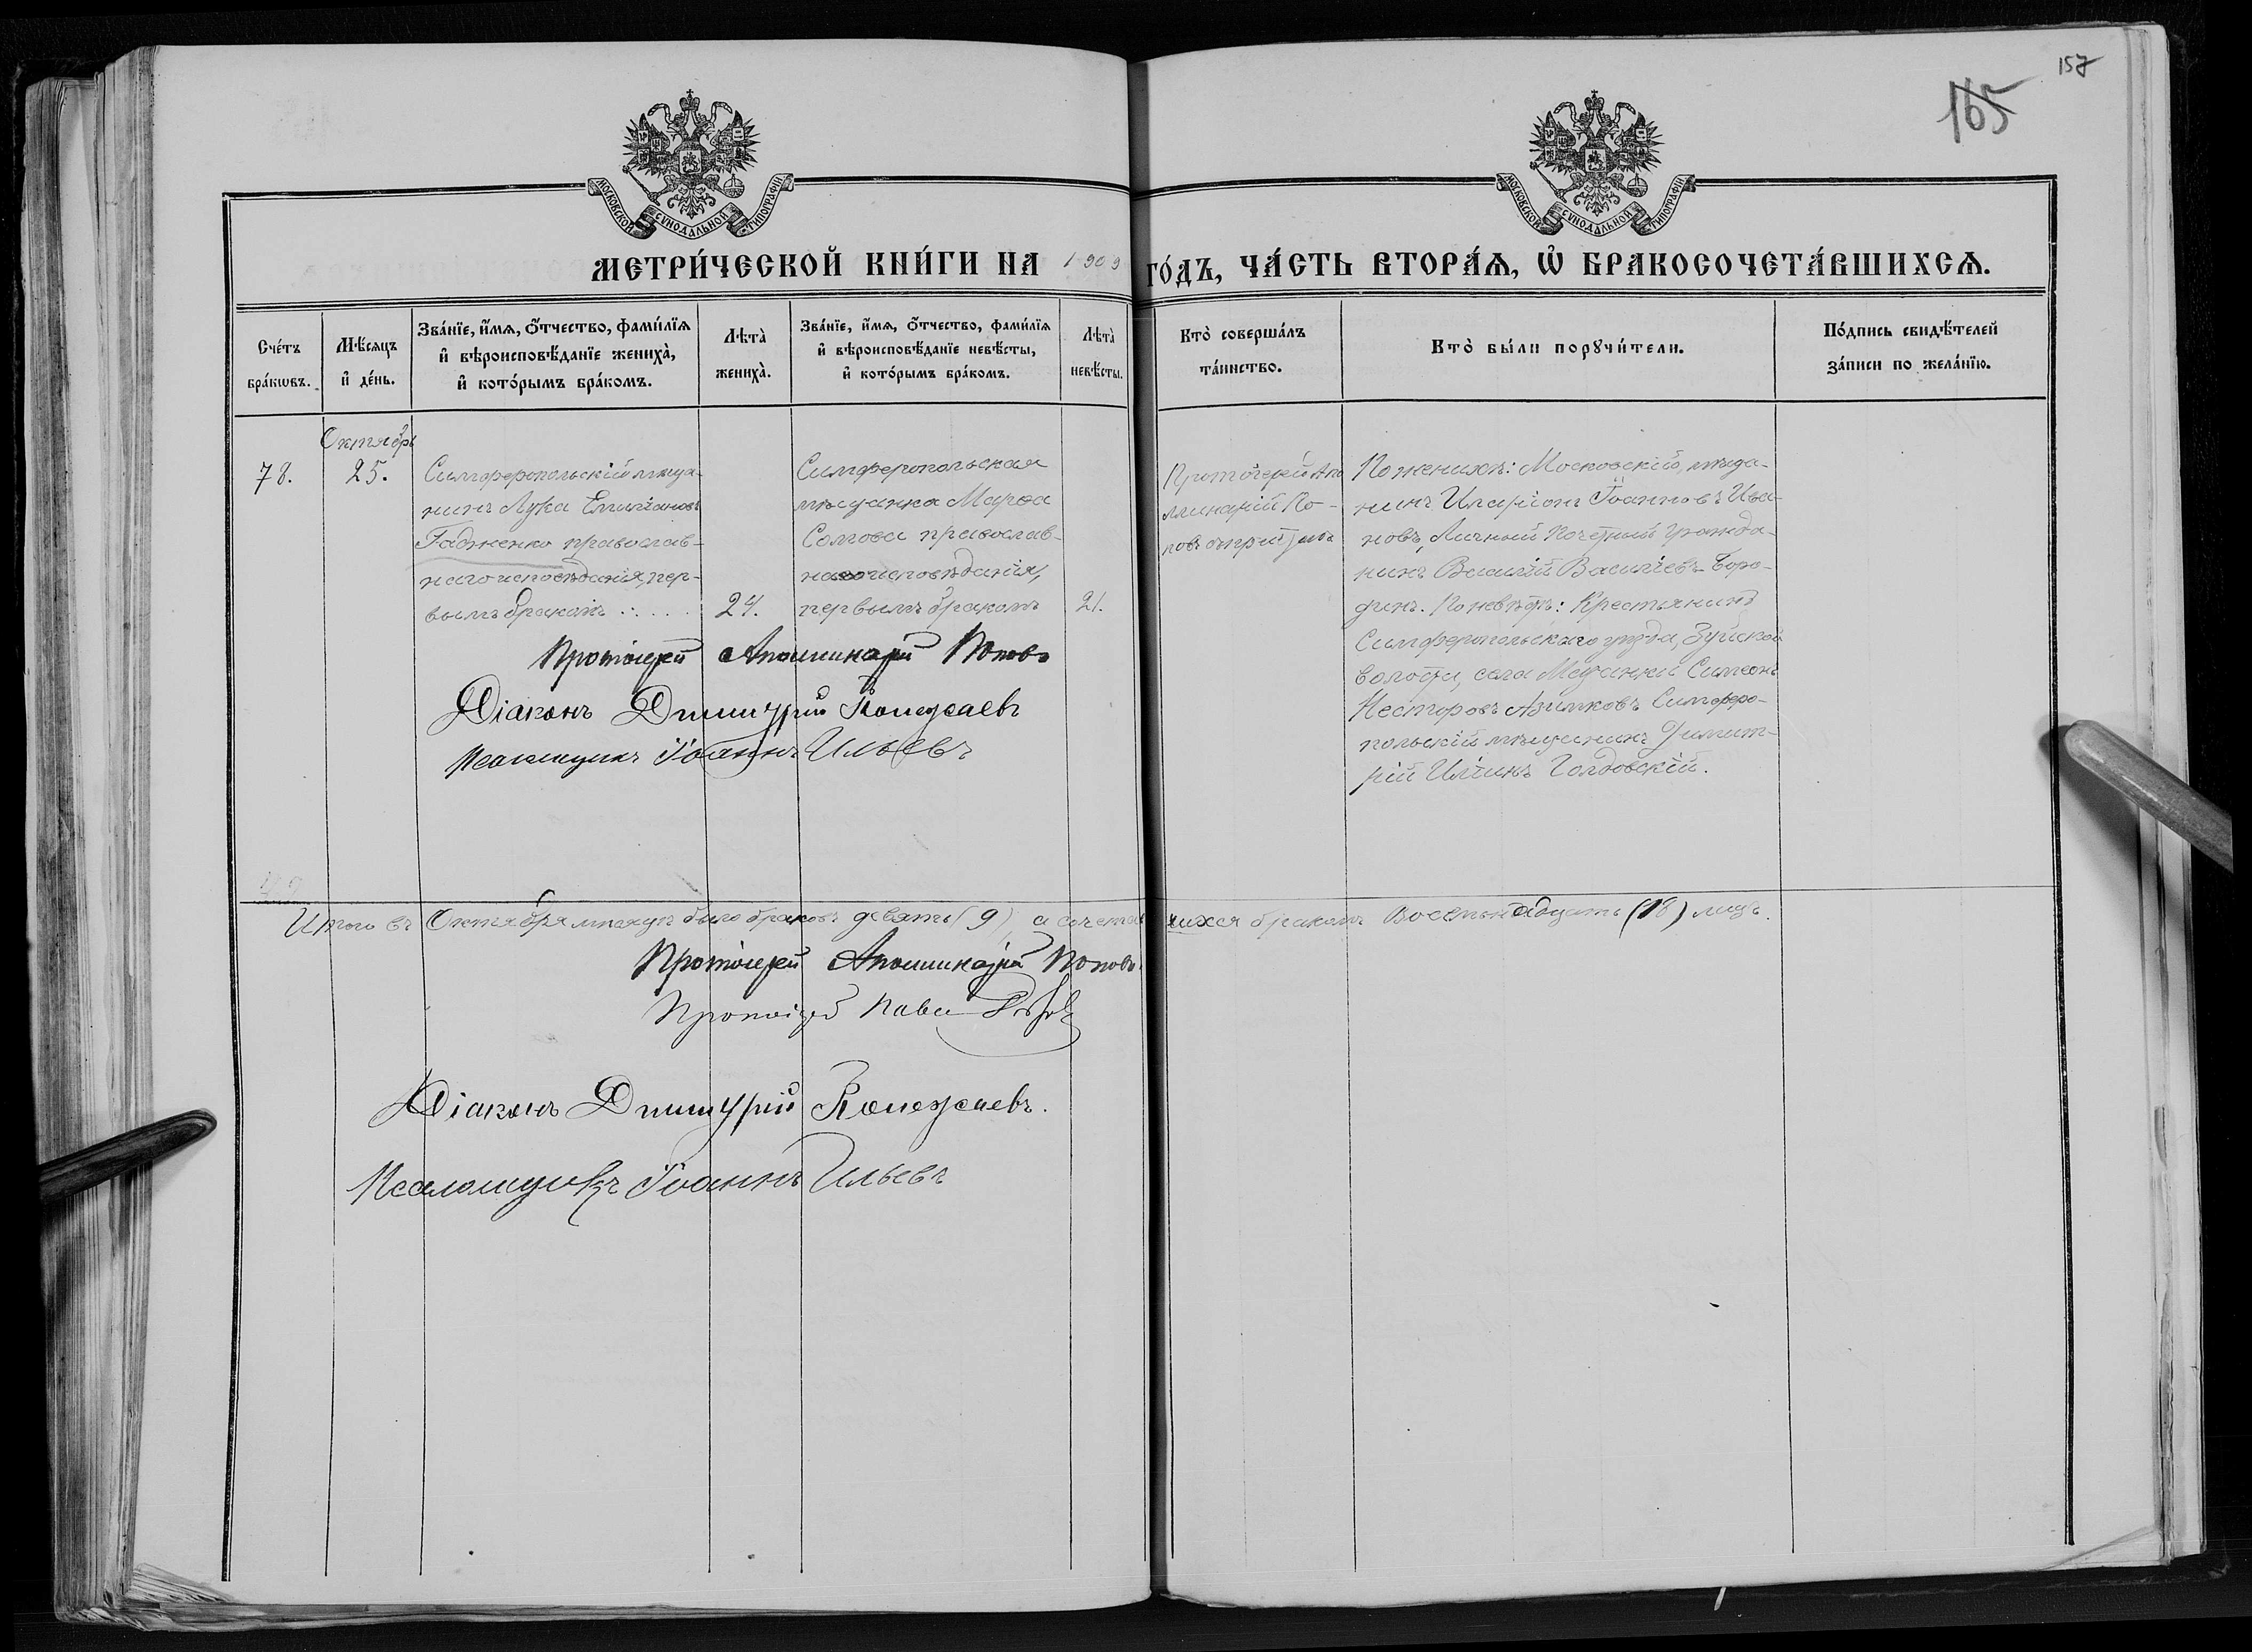 157
165
МОСКОВСКОЙ СѴНОДАЛЬНОЙ ТИПОГРАФІИ
МОСКОВСКОЙ СѴНОДАЛЬНОЙ ТИПОГРАФІИ
МЕТРИ́ЧЕСКОЙ КНИ́ГИ НА 1909 ГО́ДЪ, ЧА́СТЬ ВТОРА́Ѧ, Ѽ БРАКОСОЧЕТА́ВШИХСѦ.
Сче́тъ
бра́кѡвъ.
Мѣ́сѧцъ
и҆ де́нь.
Зва́нїе, и҆́мѧ, ѻ҆́тчество, фами́лїѧ
и҆ вѣроисповѣ́данїе жениха̀,
и҆ кото́рымъ бра́комъ.
Лѣта̀
жениха̀.
Зва́нїе, и҆́мѧ, ѻ҆́тчество, фами́лїѧ
и҆ вѣроисповѣ́данїе невѣ́сты,
и҆ кото́рымъ бра́комъ.
Лѣта̀
невѣ́сты.
Кто̀ соверша́лъ
та́инство.
Кто̀ бы́ли порꙋчи́тели.
По́дпись свидѣ́телей
за́писи по жела́нїю.
78.
Октябрь
25.
Симферопольскій мѣща-
нинъ Лука Емиліановъ
Гадженко православ-
наго исповѣданія, пер-
вымъ бракомъ
24.
Симферопольская
мѣщанка Марѳа
Солтова православ-
наго исповѣданія,
первымъ бракомъ
21.
Протоіерей Апо
ллинарій По-
повъ съ причтомъ
По женихѣ: Московскій мѣща-
нинъ Иларіонъ Іоанновъ Ива-
новъ, Личный Почетный гражда-
нинъ Василій Васильевъ Боро-
динъ. По невѣстѣ: Крестьянинъ
Симферопольскаго уѣзда, Зуйской
волости, села Мазанки Симеонъ
Несторовъ Азимковъ Симферо-
польскій мѣщанинъ Димит-
рій Ильинъ Голдовскій.
Протоіерей Аполлинарій Поповъ
Діаконъ Димитрій Полежаевъ
Псаломщикъ Іоаннъ Ильевъ
Итого въ Октябрѣ мѣсяцѣ было браковъ девять (9), а сочетавшихся бракомъ восемнадцать (18) лицъ.
Протоіерей Аполлинарій Поповъ
Протоіерей Павелъ
Діаконъ Димитрій Полежаевъ.
Псаломщикъ Іоаннъ Ильевъ